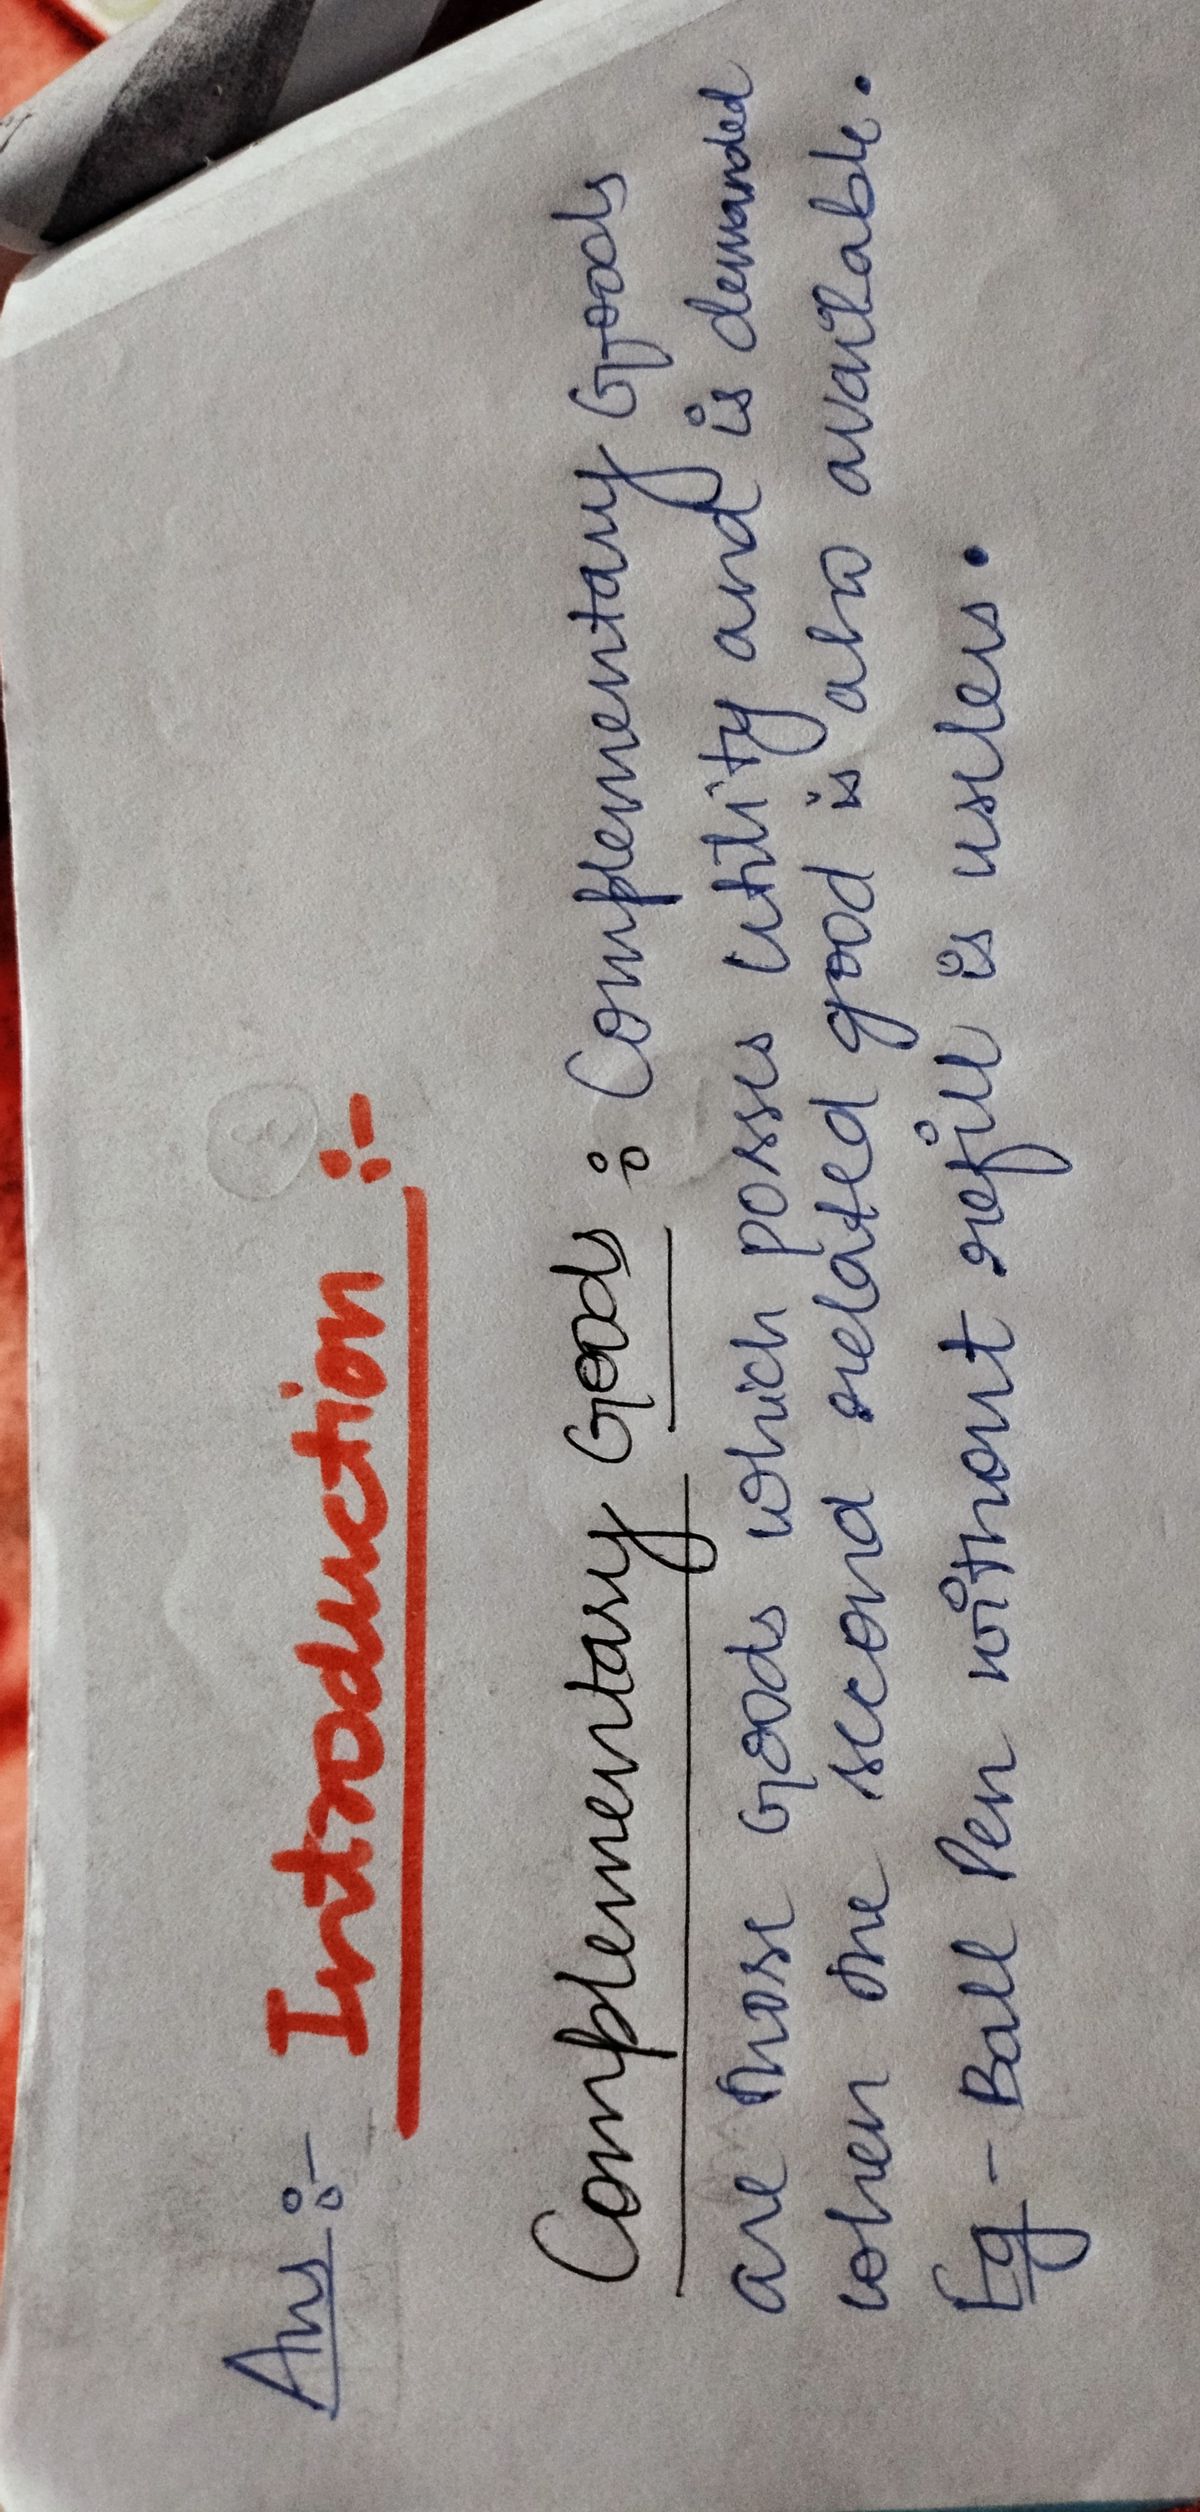 Ans :- Introduction :-
Complementary Goods : Complementary Goods
are those Goods which posses utility and is demanded
when the second related good is also available.
Eg - Ball Pen without refill is useless.